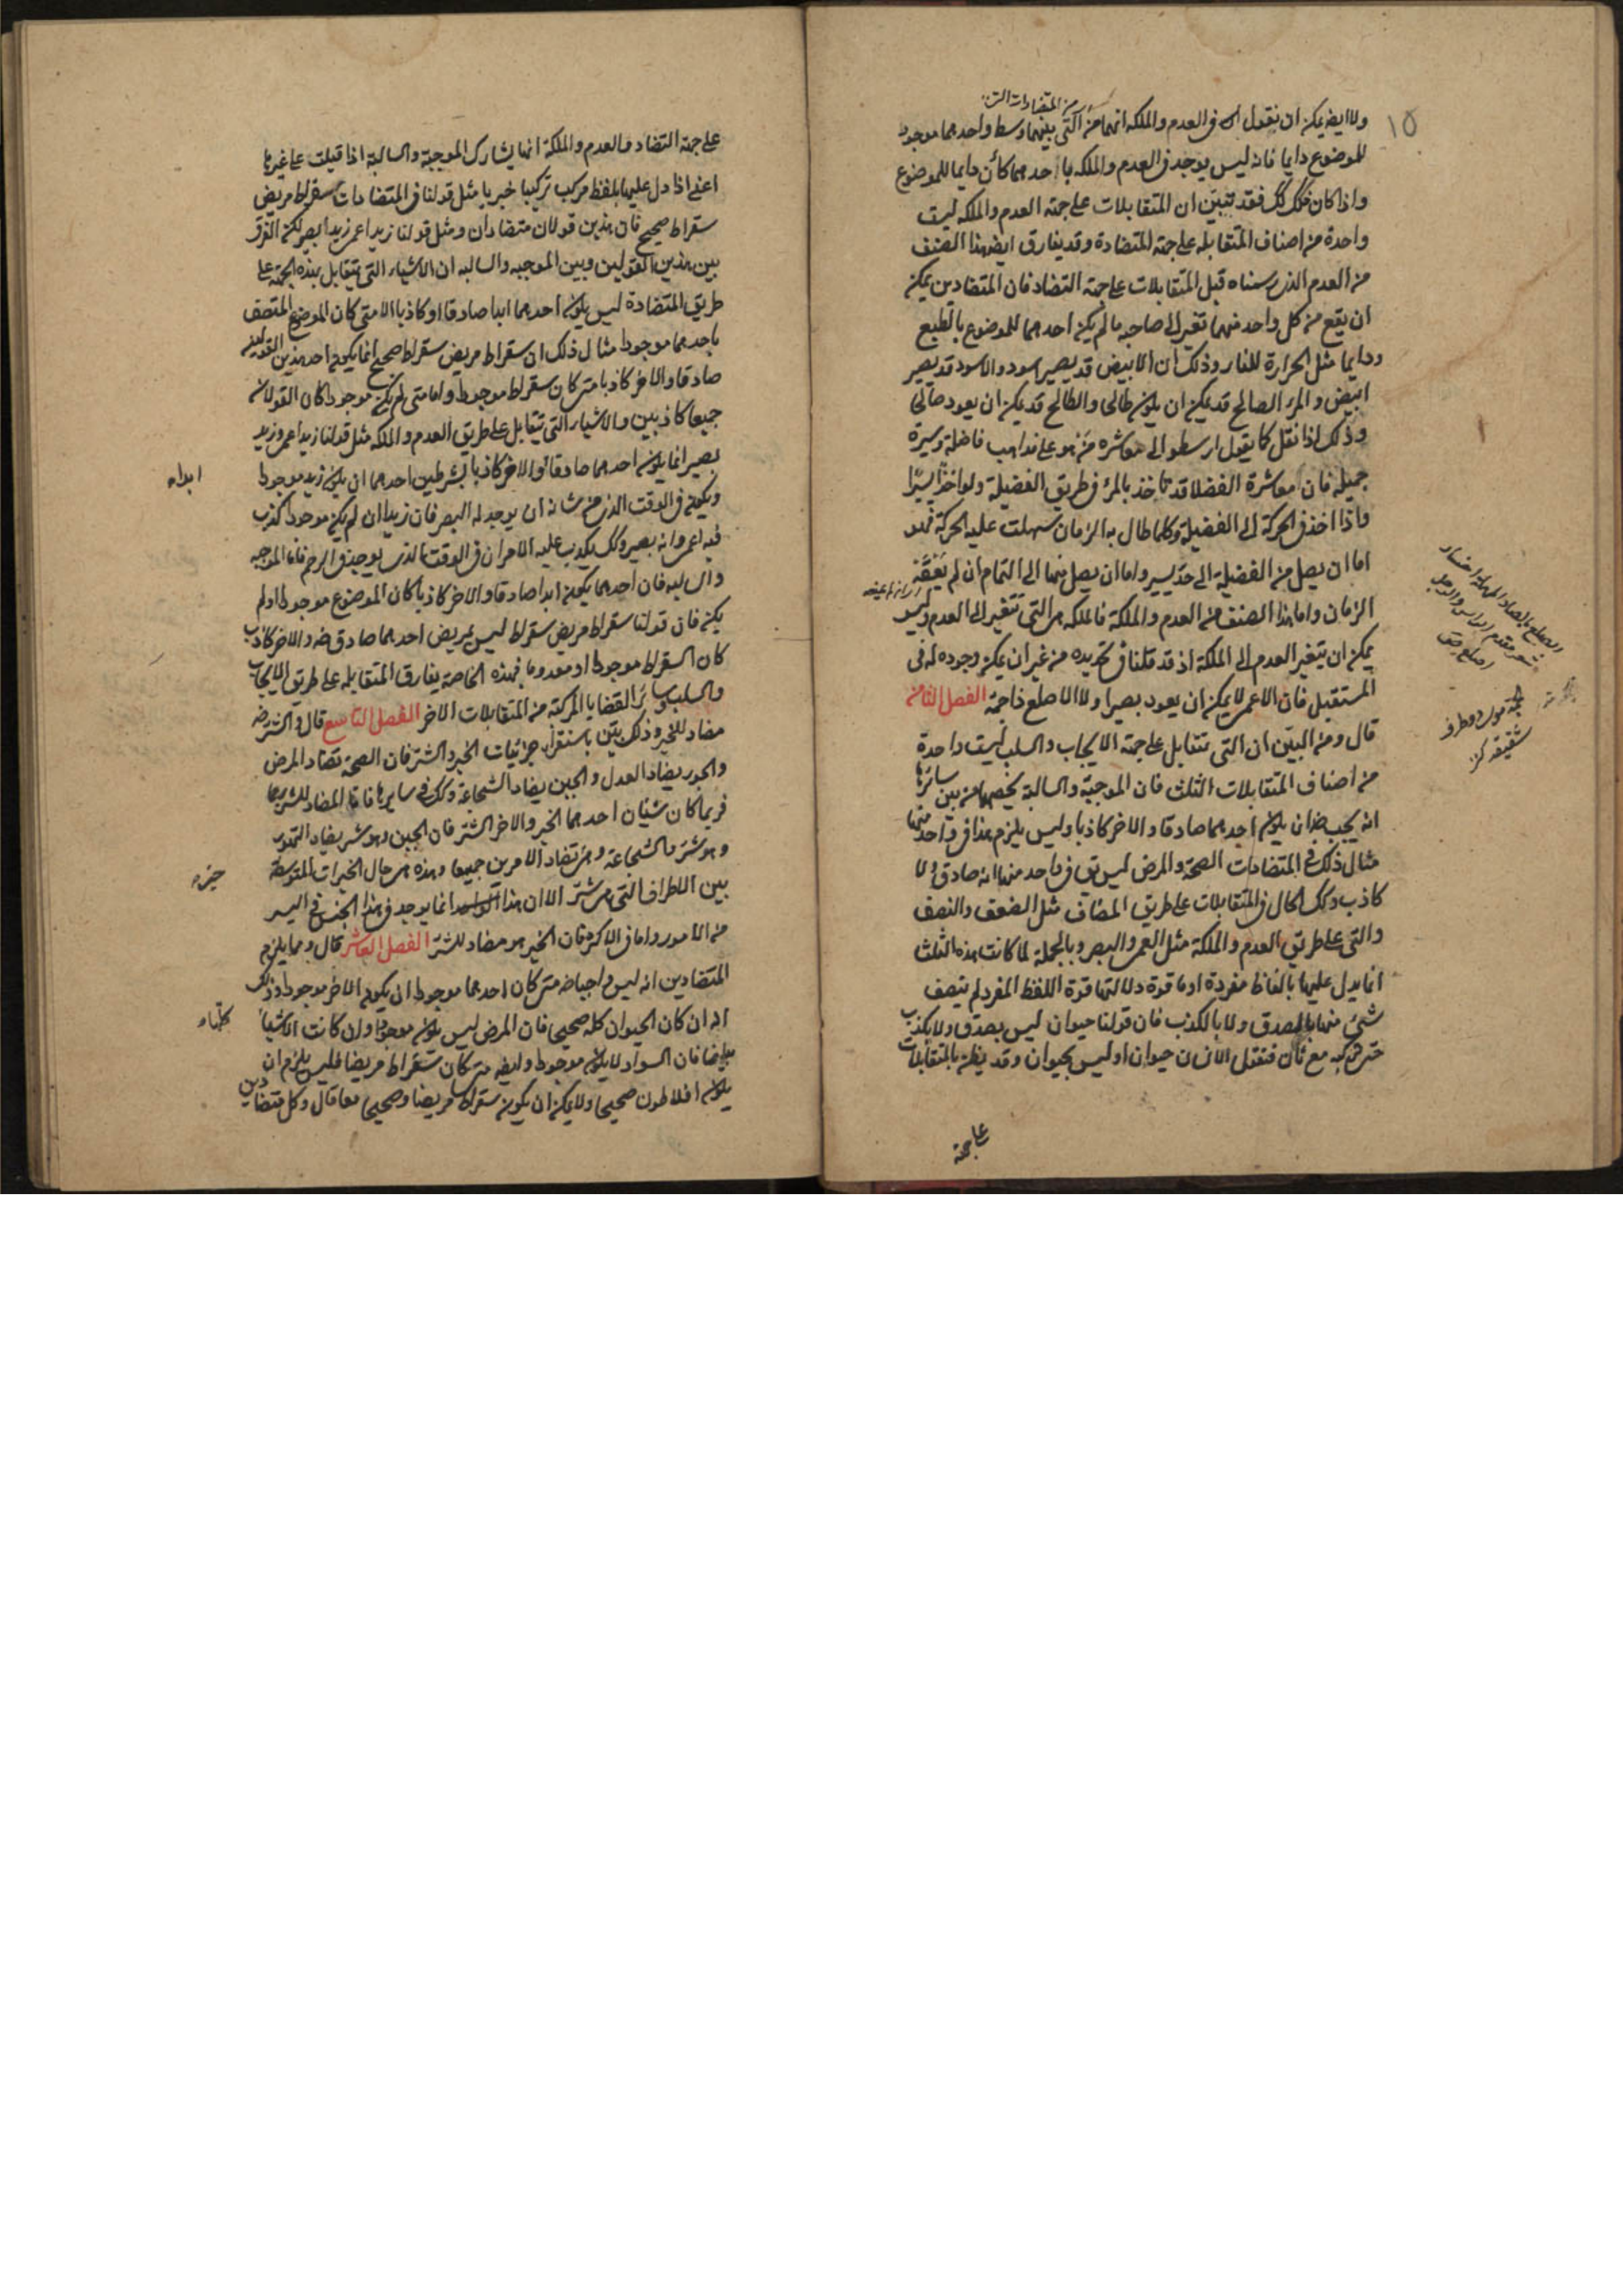 من المتضادات التي
١٥
ولا ايضه يمكن ان نقول في العدم والملكة انهما من التي بينهما وسط واحدهما موجود
للموضوع دايما فانه ليس يوجد في العدم والملكة ما احدهما كائن دايما للموضوع
واذا كان ذلك كك فقد تبين ان المتقابلات على جهة العدم والملكة ليست
واحدة من اصناف المتقابلة على جهة المتضادة وقد يفارق ايضه هذا الصنف
من العدم الذي رسمناه قبل المتقابلات على جهة التضاد فان المتضادين يمكن
ان يقع من كل واحد منهما تغير الى صاحبه ما لم يكن احدهما للموضوع بالطبع
ودايما مثل الحرارة للنار وذلك ان الابيض قد يصير اسود والاسود قد يصير
ابيض والمرء الصالح قد يمكن ان يكون طالحا والطالح قد يمكن ان يعود صالحا
وذلك اذا نقل كما يقول ارسطو الى معاشره من هو على مذاهب فاضلة وسيرة
جميلة فان معاشرة الفضلا قد تاخذ بالمرء في طريق الفضيلة ولو اخذا يسيرا
واذا اخذ في الحركة الى الفضيلة وكلما طال به الزمان سهلت عليه الحركة فهو
اما ان يصل من الفضيلة الى حد يسير واما ان يصل منها الى التمام ان لم يعقه
الزمان واما هذا الصنف من العدم والملكة فالملكة هي التي تتغير الى العدم وليس
يمكن ان يتغير العدم الى الملكة اذ قد قلنا في تحديده من غير ان يمكن وجوده له في
المستقبل فان الاعمى لا يمكن ان يعود بصيرا ولا الاصلع ذا جمة الفصل الثامن
قال ومن البين ان التي تتقابل على جهة الايجاب والسلب ليست واحدة
من اصناف المتقابلات الثلث فان الموجبة والسالبة يخصهما من بين سائرها
انه يجب ضه ان يكون احدهما صادقا والاخر كاذبا وليس يلزم هذا في واحد منها
مثال ذلك في المتضادات الصحة والمرض ليس يق في واحد منهما انه صادق ولا
كاذب وكك الحال في المتقابلات على طريق المضاف مثل الضعف والنصف
والتي على طريق العدم والملكة مثل العمى والبصر وبالجملة لما كانت هذه الثلث
انما يدل عليها بالفاظ مفردة او ما قوة دلالتها قوة اللفظ المفرد لم يتصف
شيء منها بالصدق ولا بالكذب فان قولنا حيوان ليس يصدق ولا يكذب
حتى نركبه مع ثان فنقول الانسان حيوان او ليس بحيوان وقد يظن بالمتقابلات
على جهة
الصلع بالصاد المهملة انحسار
شعر مقدم الراس والرجل
اصلع
على جهة التضاد والعدم والملكة انها يشارك الموجبة والسالبة اذا قيلت على غيرها
اعني اذا دل عليها بلفظ مركب تركيبا خبريا مثل قولنا في المتضادات سقراط مريض
سقراط صحيح فان هذين قولان متضادان ومثل قولنا زيد اعمى زيد ابصر لكن الفرق
بين هذين القولين وبين الموجبة والسالبة ان الاشياء التي تتقابل بهذه الجهة على
طريق المتضادة ليس يكون احدهما ابدا صادقا او كاذبا الا متى كان الموضوع المتصف
باحدهما موجودا مثال ذلك ان سقراط مريض سقراط صحيح انما يكون احد هذين القولين
صادقا والاخر كاذبا متى كان سقراط موجودا واما متى لم يكن موجودا كان القولان
جميعا كاذبين والاشياء التي تتقابل على طريق العدم والملكة مثل قولنا زيد اعمى وزيد
بصير انما يكون احدهما صادقا والاخر كاذبا بشرطين احدهما ان يكون زيد موجودا
ابدا
ويكون في الوقت الذي من شانه ان يوجد له البصر فان زيدا ان لم يكن موجودا كذب
فيه اعمى وانه بصير وكك يكذب عليه الامران في الوقت الذي يوجد في الرحم فاما الموجبة
والسالبة فان احدهما يكون ابدا صادقا والاخر كاذبا كان الموضوع موجودا او لم
يكن فان قولنا سقراط مريض سقراط ليس بمريض احدهما صادق ضه والاخر كاذب
كان السقراط موجودا او معدوما فبهذه الخاصة يفارق المتقابلة على طريق الايجاب
والسلب سائر القضايا المركبة من المتقابلات الاخر الفصل التاسع قال والشر ضه
مضاد للخير وذلك بين باستقراء جزئيات الخير والشر فان الصحة تضاد المرض
والجور يضاد العدل والجبن يضاد الشجاعة وكك في سايرها فاما المضاد للشر
فربما كان شيئان احدهما الخير والاخر الشر فان الجبن وهو شر يضاد التهور
وهو شر والشجاعة وهي تضاد الامرين جميعا وهذه هي حال الخيرات المتوسطة
خير
بين الاطراف التي هي شر الا ان هذا انما يوجد في هذا الجنس في اليسير
من الامور واما في الاكثر فان الخير هو مضاد للشر الفصل العاشر قال ومما يلزم
المتضادين انه ليس واجبا ضه متى كان احدهما موجودا ان يكون الاخر موجودا وذلك
انه ان كان الحيوان كله صحيحا فان المرض ليس يكون موجودا وان كانت الاشياء
كلها
بيضا فان السواد لا يكون موجودا وايضه متى كان سقراط مريضا فليس يلزم ان
يكون افلاطون صحيحا ولا يمكن ان يكون سقراط مريضا وصحيحا معا قال وكل متضادين